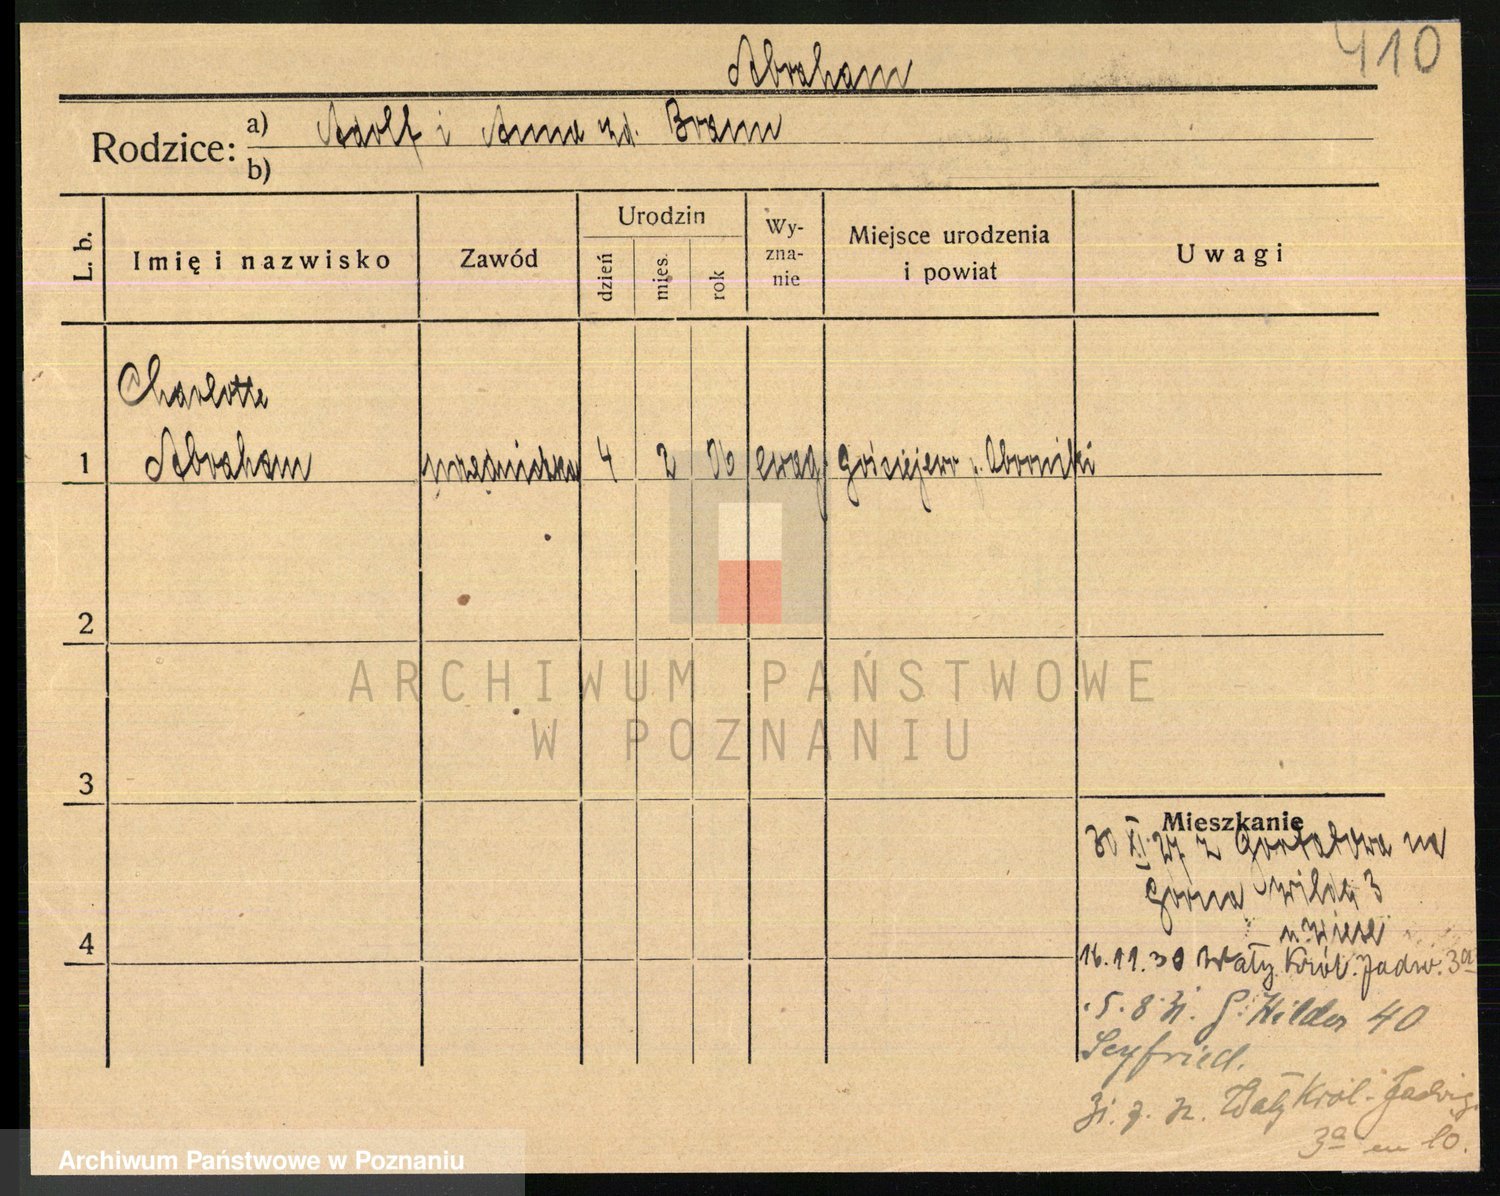 410
Abraham
Rodzice: a) Adolf i Anna zd. Braun
b)
L. b.
Imię i nazwisko
Zawód
Urodzin
dzień
mies.
rok
Wy-
zna-
nie
Miejsce urodzenia
i powiat
Uwagi
Charlotte
1 Abraham 4 2 06 ewag. Gościejewo p. Oborniki
2
ARCHIWUM PAŃSTWOWE
W POZNANIU
3
Mieszkanie
30 XI 27 z na
Górna Wilda 3
4
16.11.30 Wały Król. Jadw. 3a
5.8.31. G. Wilda 40
Seyfried.
Wały Król. Jadwig.
3a 10.
Archiwum Państwowe w Poznaniu